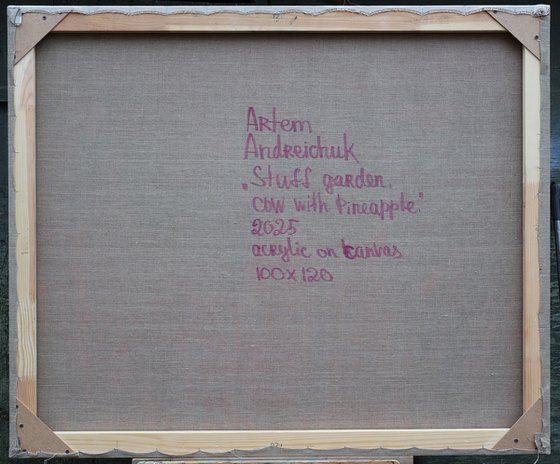 Artem
Andreichuk
„Stuff garden.
Cow with Pineapple"
2025
acrylic on canvas
100x120